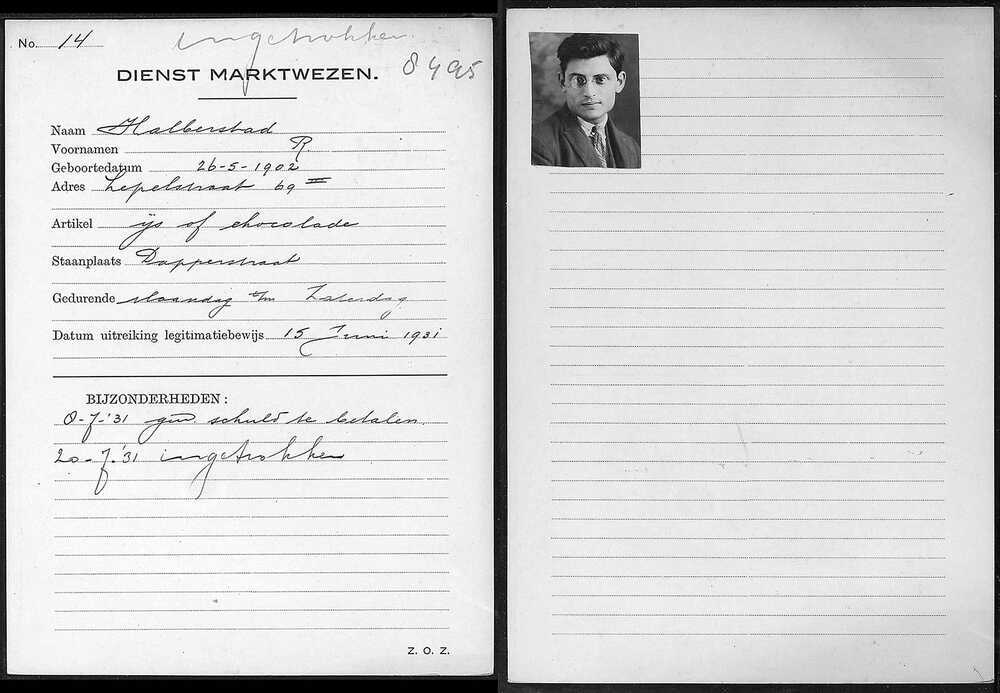 No. 14
ingetrokken.
DIENST MARKTWEZEN. 8495
Naam Halberstad
Voornamen R.
Geboortedatum 26-5-1902
Adres Lepelstraat 69 III
Artikel ijs of chocolade
Staanplaats Dapperstraat
Gedurende Maandag t/m Zaterdag
Datum uitreiking legitimatiebewijs 15 Juni 1931
BIJZONDERHEDEN:
-7-'31 schuld te betalen.
20-7-'31 ingetrokken
Z. O. Z.